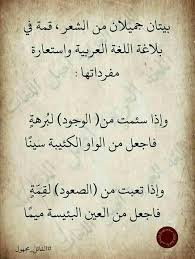 بيتان جميلان من الشعر ، قمة في
بلاغة اللغة العربية واستعارة
مفرداتها :
وإذا سئمت من (الوجود) لبُرهةٍ
فاجعل من الواو الكئيبة سينًا
وإذا تعبت من (الصعود) لقِمّةٍ
فاجعل من العين البئيسة ميمًا
#القائل_مجهول